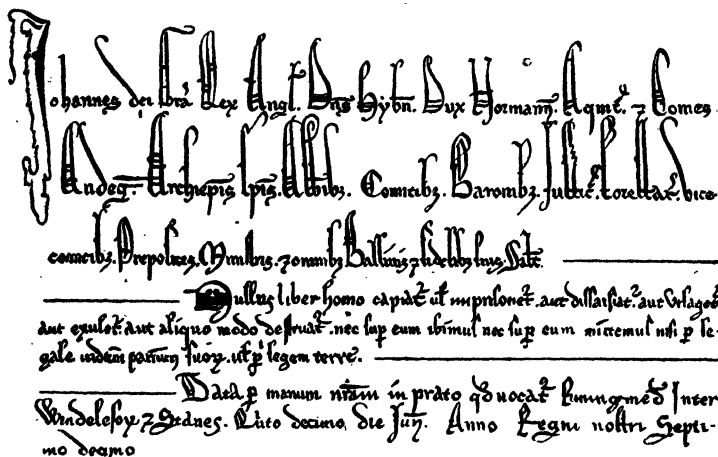 Johannes dei Gra Rex Angl. Dns Hybn. Dux Normann. Aqnit. ⁊ Comes.
Andeg. Archiepis Epis. Abbibz. Comitibz. Baronibz. Justic. Forestar. vice
comitibz. Prepositis. Ministris. ⁊ omnibz Ballivis ⁊ fidelibz suis Salt.
Nullus liber homo capiat ul inprisonet. aut dissaisiat. aut utlaget
aut exulet. aut aliquo modo destruat. nec sup eum ibimus nec sup eum mittemus nisi p le-
gale iudiciu parium suoꝝ. ul p legem terre.
Data p manum nram in prato qd vocat Runingmed Inter
Windelesoꝝ ⁊ Stanes. Quto decimo die Jun. Anno Regni nostri Septi-
mo decimo